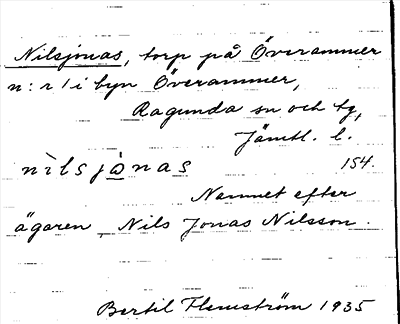 Nilsjonas, torp på Överammer
n:r 1 i byn Överammer,
Ragunda sn och tg,
Jämtl. l.
nìlsjònas 154.
Namnet efter
ägaren Nils Jonas Nilsson.
Bertil Flemström 1935